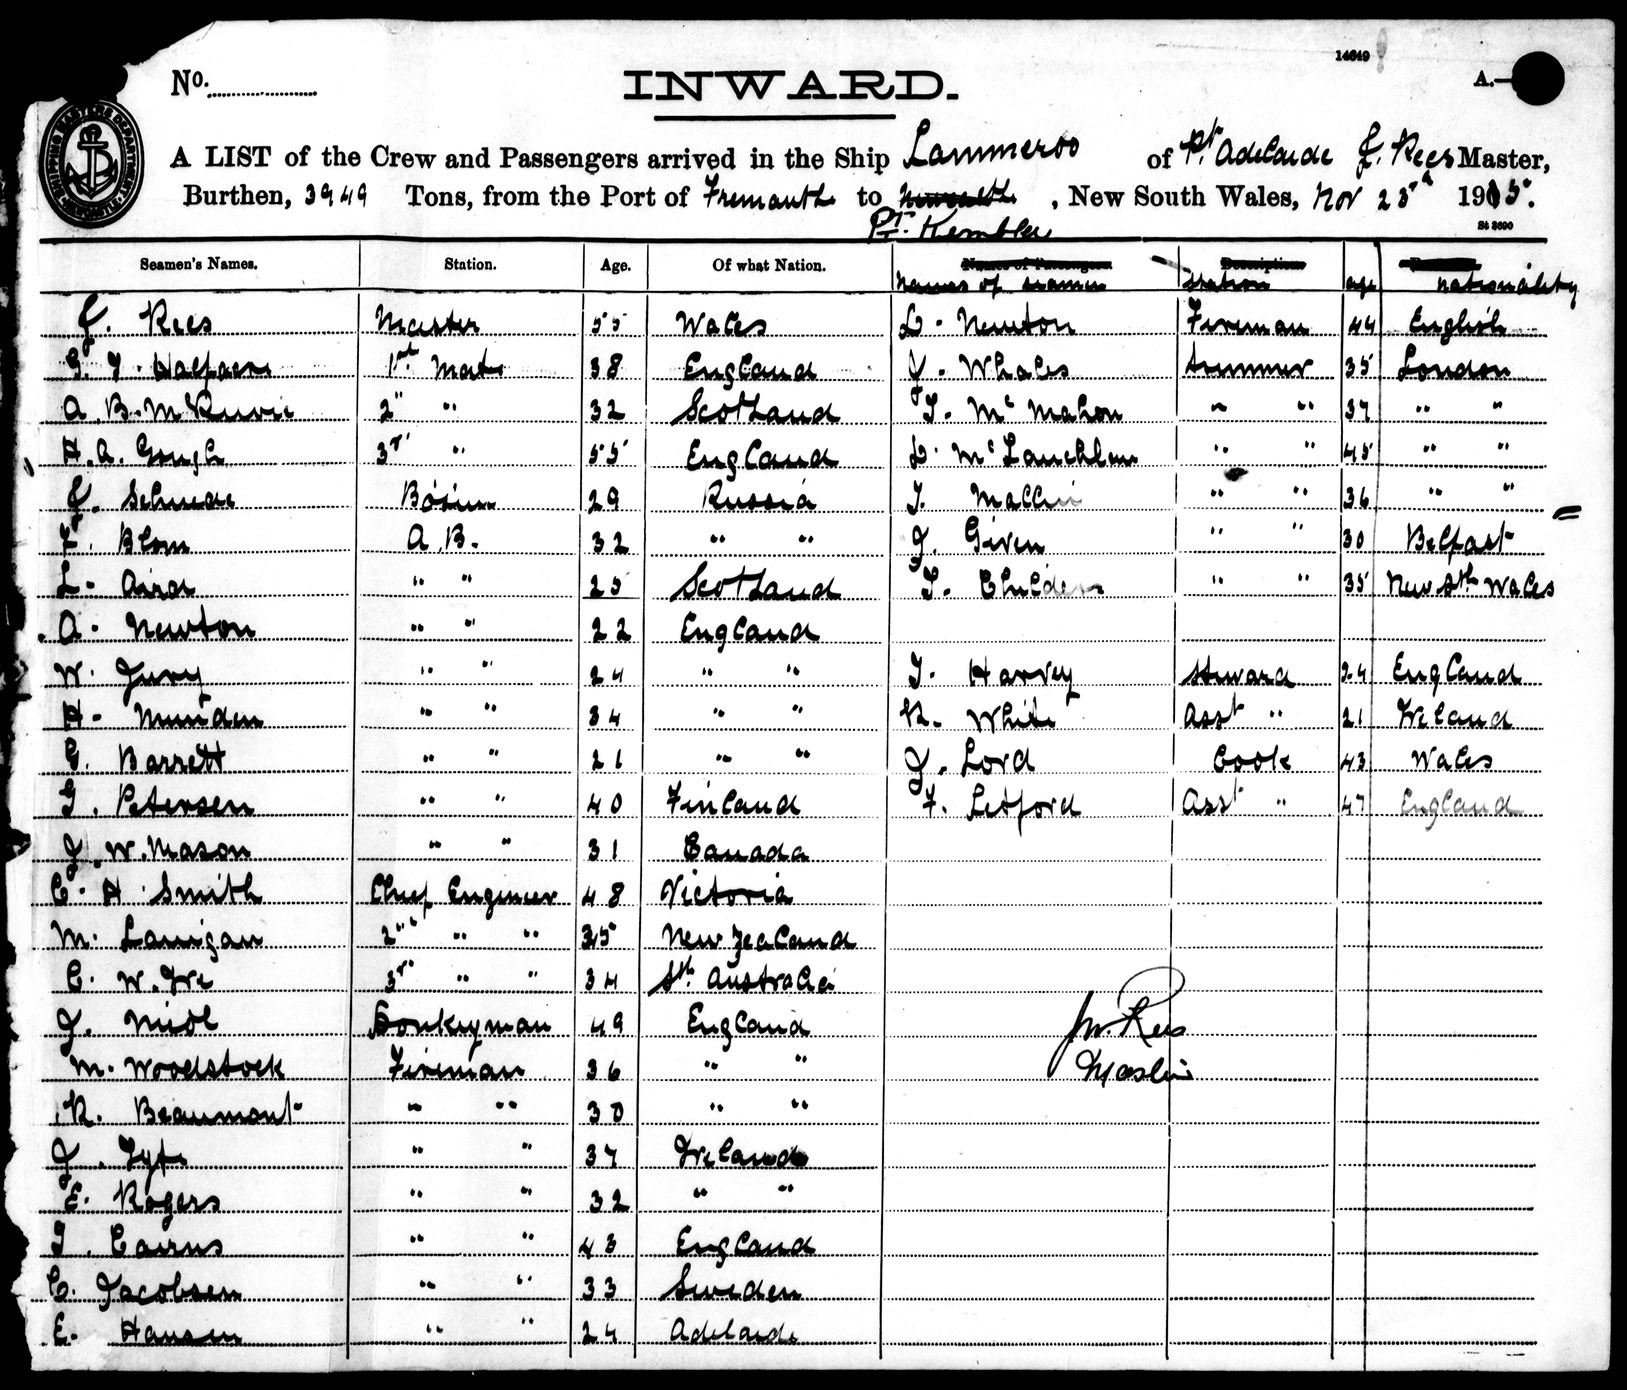 14649
No.
INWARD.
A.—
SHIPPING MASTERS DEPARTMENT NEWCASTLE
A LIST of the Crew and Passengers arrived in the Ship Lammeroo of Pt Adelaide J. Rees Master,
Burthen, 3949 Tons, from the Port of Fremantle to Newcastle, New South Wales, Nov 23rd 1915.
Pt. Kembla
St 3690
Seamen's Names. Station. Age. Of what Nation. Names of Passengers. Description.
names of seamen station age nationality
J. Rees Master 55 Wales D. Newton Fireman 44 English
G. J. Halfacre 1st Mate 38 England J. Whales Trimmer 35 London
A. B. McRuvie 2" " 32 Scotland T. McMahon " " 37 " "
H. A. Gough 3r " 55 England D. McLauchlan " " 45 " "
J. Schwede Bosun 29 Russia T. " " 36 " "
F. Blom A.B. 32 " " J. Given " " 30 Belfast
L. Aird " " 25 Scotland T. Childers " " 35 New Sth Wales
A. Newton " " 22 England
W. Jury " " 24 " " T. Harvey Steward 24 England
H. Munden " " 34 " " R. White Asst " 21 Ireland
G. Barrett " " 21 " " J. Lord Cook 43 Wales
G. Petersen " " 40 Finland F. Letford Asst " 47 England
J. W. Mason " " 31 Canada
C. H. Smith Chief Engineer 48 Victoria
M. Lanigan 2nd " " 35 New Zealand
C. W. Ive 3r " " 34 Sth Australia
J. Nidl Donkeyman 49 England
Jno. Rees
M. Woodstock Fireman 36 " "
Master
R. Beaumont " " 30 " "
J. Tyte " " 37 Ireland
E. Rogers " " 32 " "
T. Cairns " " 43 England
C. Jacobsen " " 33 Sweden
E. Hansen " " 24 Adelaide